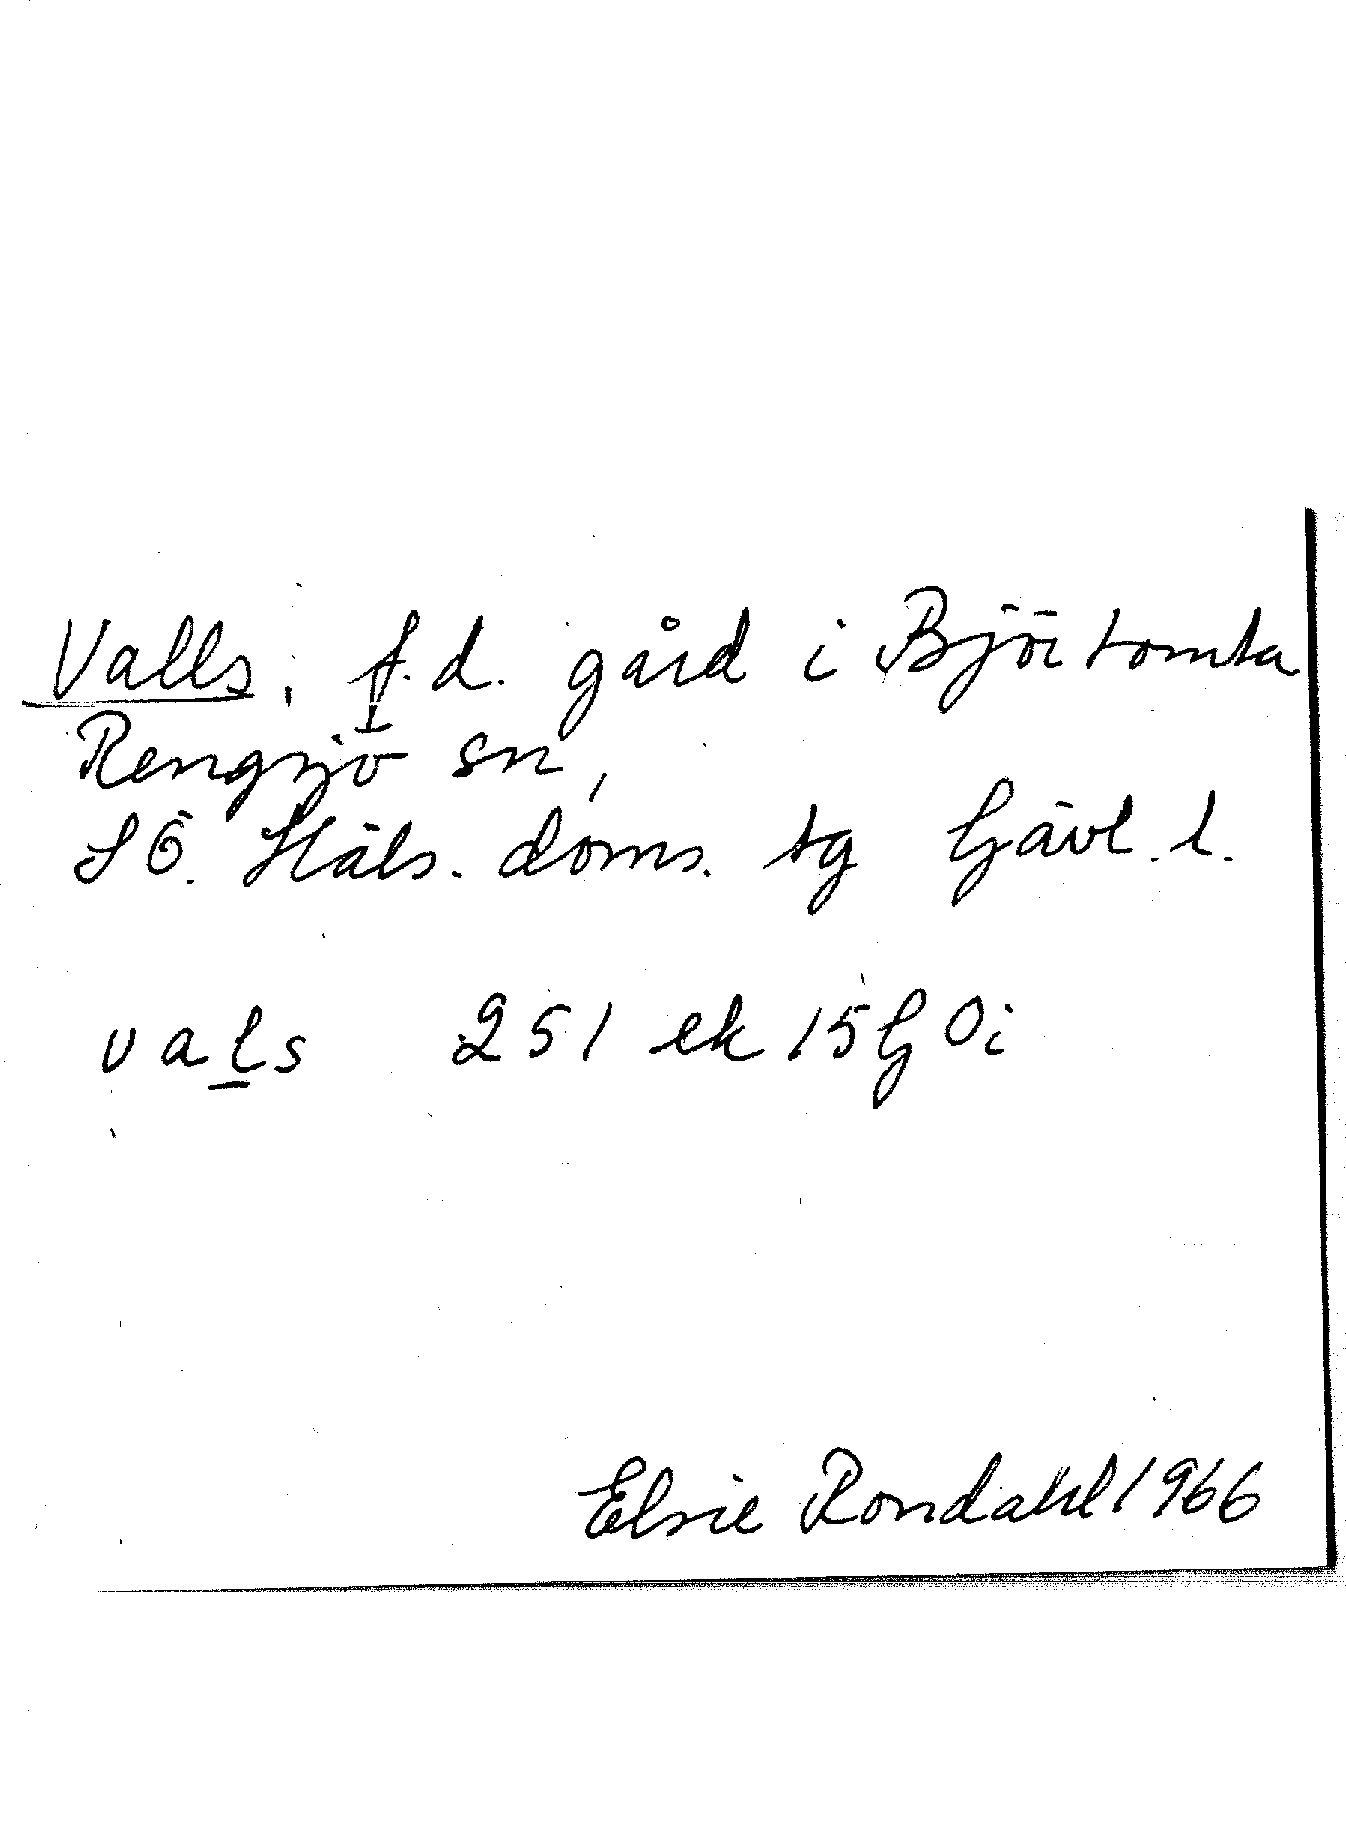 Valls, f.d. gård i Björtomta
Rengsjö sn,
SÖ. Häls. doms. tg Gävl. l.
vals 251 ek 15G0i
Elsie Rondahl 1966